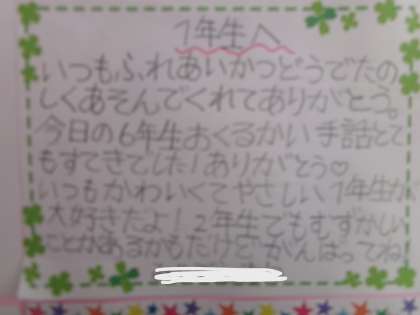 1年生へ
いつもふれあいかつどうでたの
しくあそんでくれてありがとう。
今日の6年生おくるかい手話とて
もすてきでした！ありがとう♡
いつもかわいくてやさしい1年生が
大好きだよ！2年生でもむずかしい
ことがあるかもだけどがんばってね！